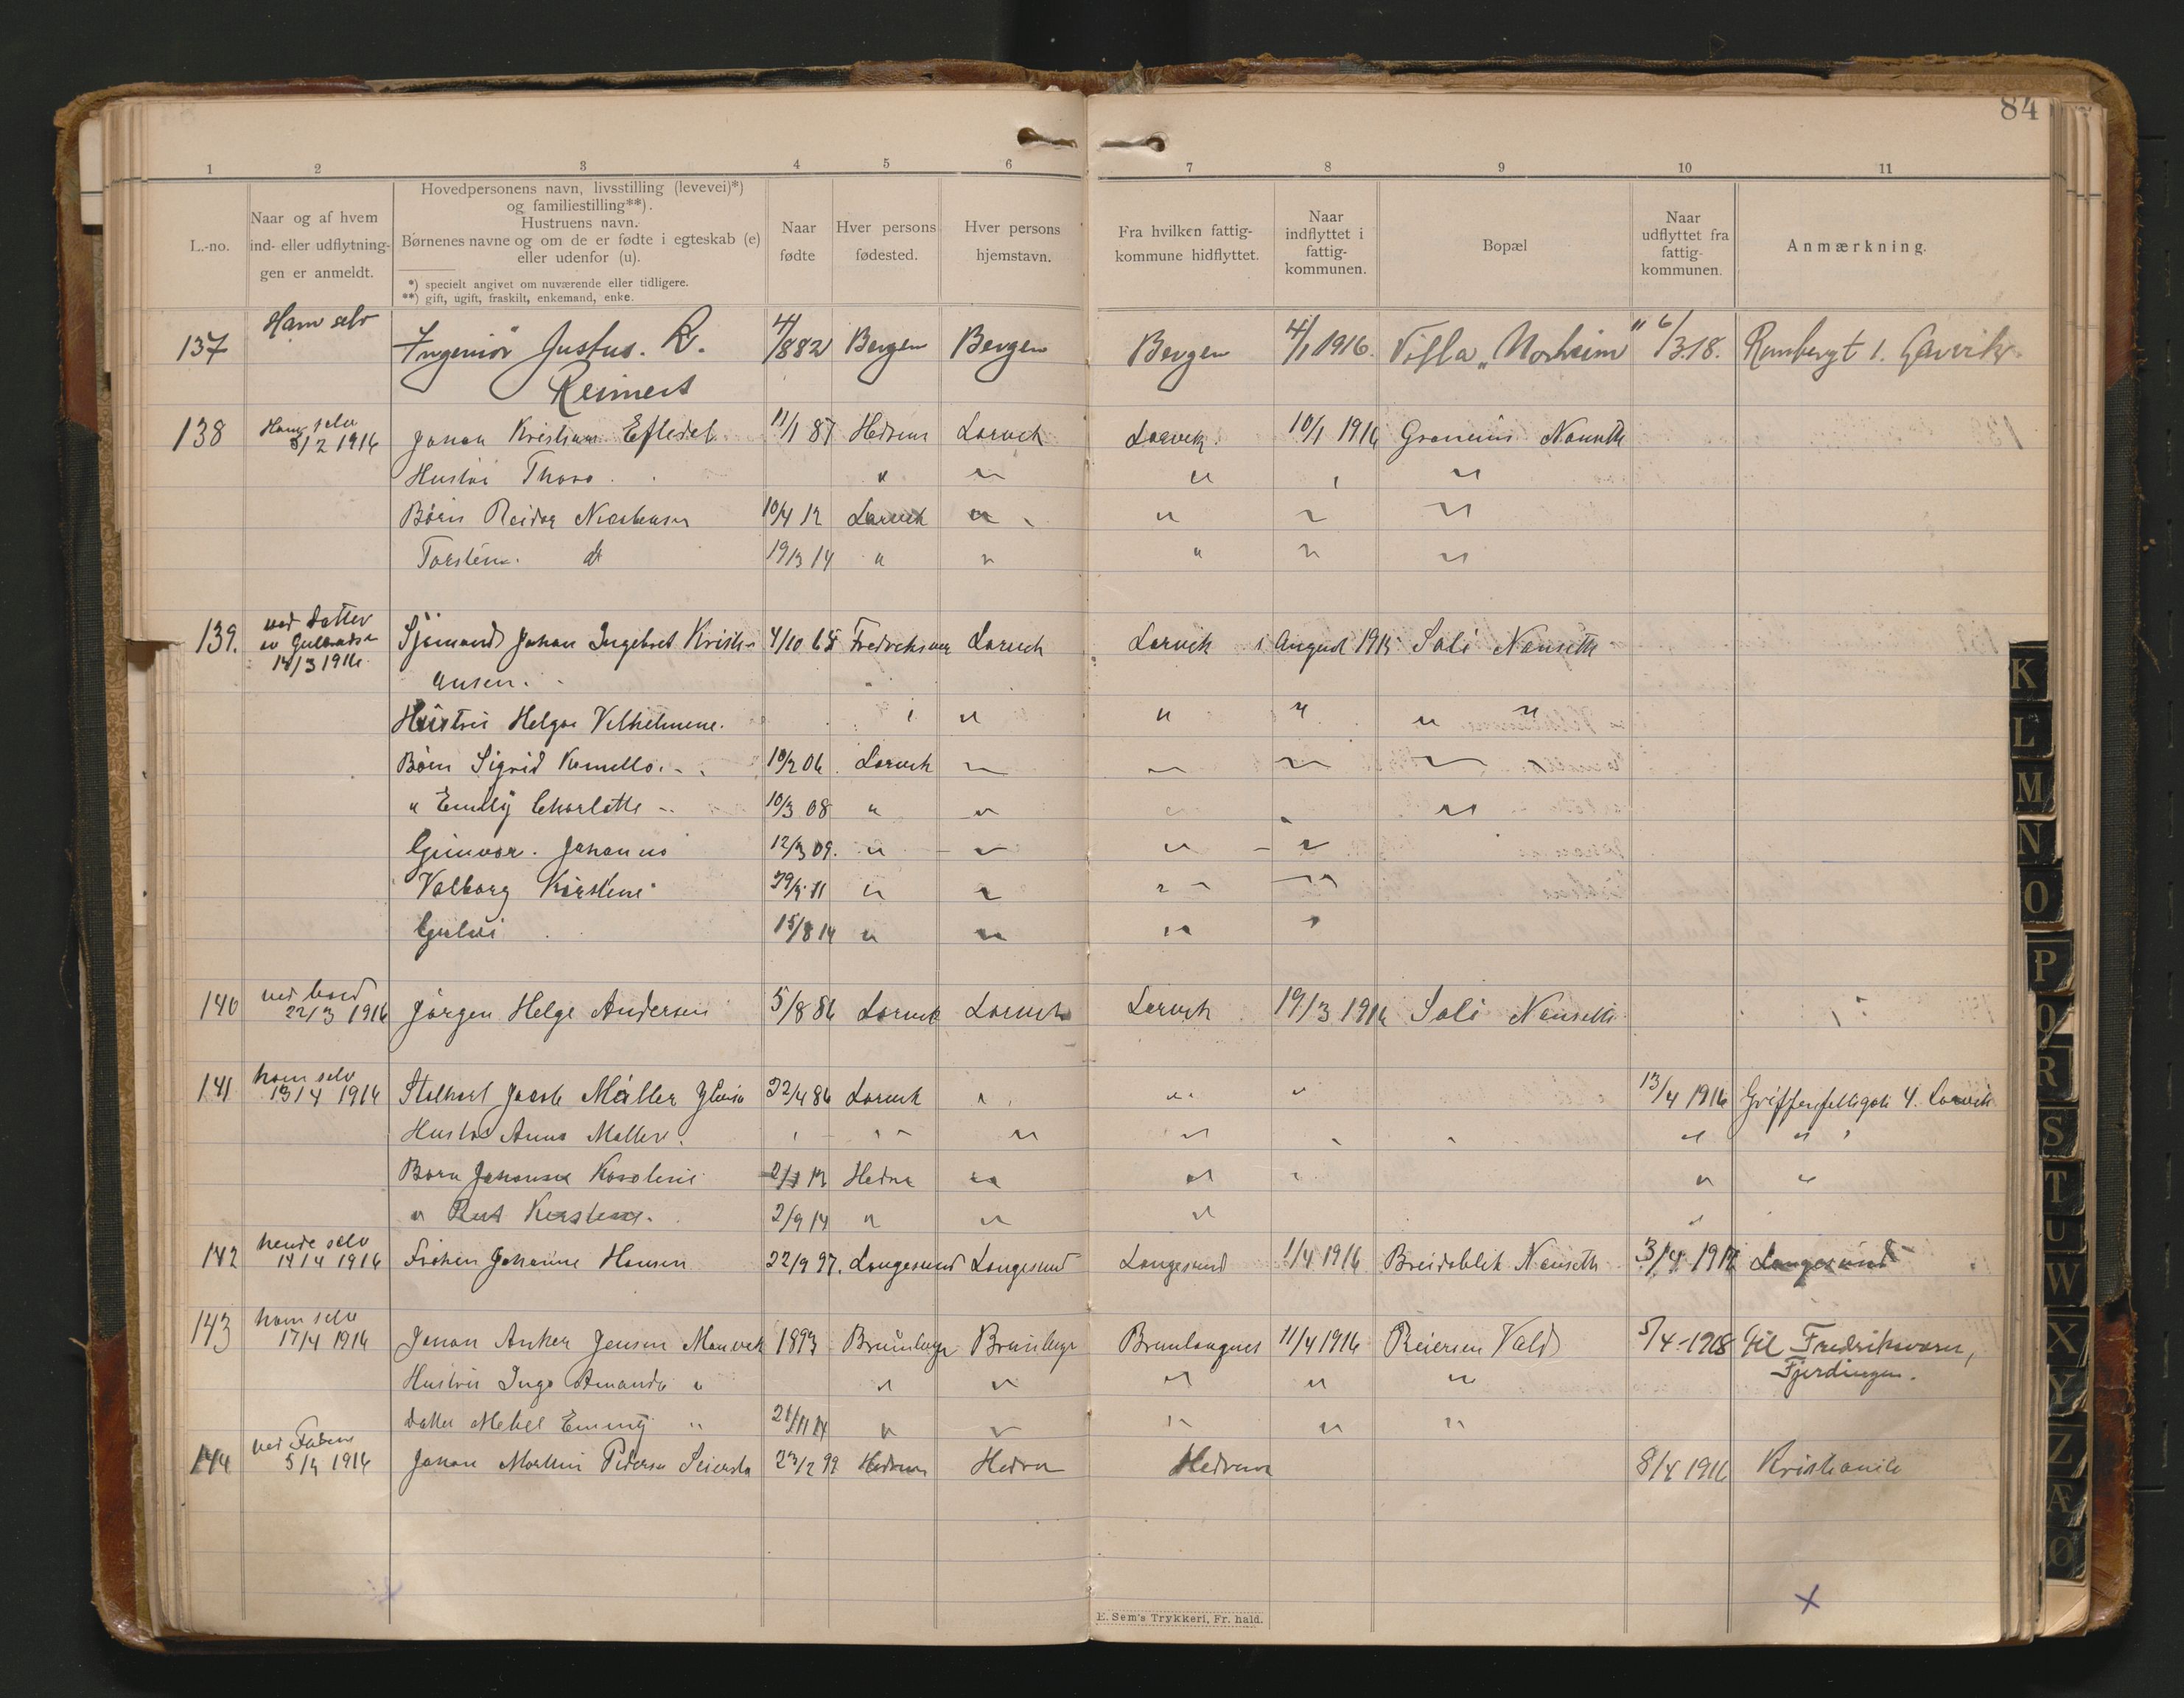 84
1 2 3 4 5 6 7 8 9 10 11
L.-no.
Naar og af hvem
ind- eller udflytning-
gen er anmeldt.
Hovedpersonens navn, livsstilling (levevei)*)
og familiestilling**).
Hustruens navn.
Børnenes navne og om de er fødte i egteskab (e)
eller udenfor (u).
*) specielt angivet om nuværende eller tidligere.
**) gift, ugift, fraskilt, enkemand, enke.
Naar
fødte
Hver persons
fødested.
Hver persons
hjemstavn.
Fra hvilken fattig-
kommune hidflyttet.
Naar
indflyttet i
fattig-
kommunen.
Bopæl
Naar
udflyttet fra
fattig-
kommunen.
Anmærkning.
137 Ham selv Ingeniør Justus. R. 4/1 882 Bergen Bergen Bergen 4/1 1916. Villa „Norheim" 6/3 18.
Reimers
138 Ham selv 8/2 1916 Johan Kristian 11/1 87 Hedrum Larvik Larvik. 10/1 1916 Nanseth
Hustru Thora " " " " "
Børn Reidar 10/4 12 Larvik " " " "
Torstein do 19/3 14 " " " " "
139. ved datter 14/3 1916 Sjømand Johan Ingebret Kristi- 4/10 65 Fredriksvern Larvik Larvik i August 1915 Soli Nanseth
ansen.
Hustru Helga Vilhelmine. " " " " "
Børn Sigrid 10/2 06 Larvik " " " "
" Emily Charlotte 10/3 08 " " " "
Gunvor Johanne 12/3 09. " " " "
Valborg Kirstine 29/5 11 " " " "
15/8 14 " " " "
140 ved bud 22/3 1916 Jørgen Helge Andersen 5/8 86 Larvik Larvik Larvik 19/3 1916 Soli Nanseth
141 ham selv 13/4 1916 Jacob Møller 22/4 86 Larvik " " " 13/4 1916 Griffenfeldtsgate 4. Larvik
Hustru Anna Møller. " " " " " "
Børn Johanna Karoline 2/1 13 Hedrum " " " " "
" Rut Kirstine. 2/9 14 " " " "
142 hende selv 14/4 1916 Frøken Johanne Hansen 22/9 97. Langesund Langesund Langesund 1/4 1916 Breidablik Nanseth 3/4 1917 Langesund
143 ham selv 17/4 1916 Johan Anker Jensen Manvik 1893 Brunlanes Brunlanes Brunlangnes 11/4 1916 Reiersen Vald 5/4-1918 til Fredriksvern,
Fjerdingen.
Hustru Inga Amanda " " " " " "
datter Mebel Emmy " 21/11 14 " " " " "
144 5/4 1916 Johan Martin Pedersen 23/2 99 Hedrum Hedrum Hedrum 8/4 1916 Kristiania
E. Sem's Trykkeri, Fr. hald.
K
L
M
N
O
P
Q
R
S
T
U
W
X
Y
Z
Æ
Ø